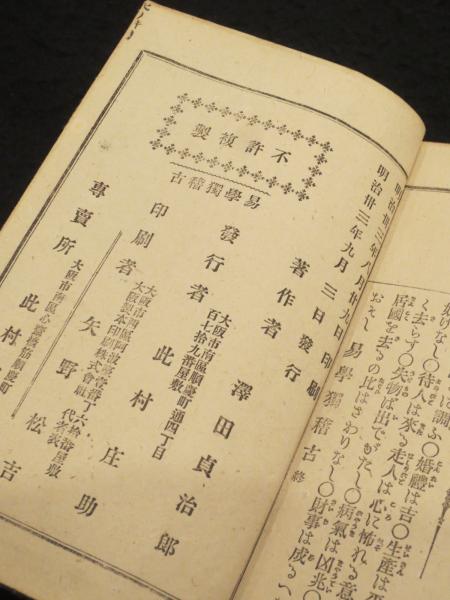 に調ふ〇婚禮は吉〇生産は平
く去らす〇待人は來る走人は心に怖れる意
居國を去るの比はさわりなし〇病氣は凶兆〇
〇失物は出でがたし〇財事は成る
おそし
易學獨稽古 終
明治卅三年八月廿九日印刷
明治卅三年九月三日發行
不許複製
易學獨稽古
著作者 澤田貞治郎
發行者
大阪市南區順慶町通四丁目
百七拾九番屋敷
此村庄助
印刷者
大阪製本印刷株式會社
代表者
矢野松吉
專賣所
大阪市南區心齋橋筋順慶町
此村